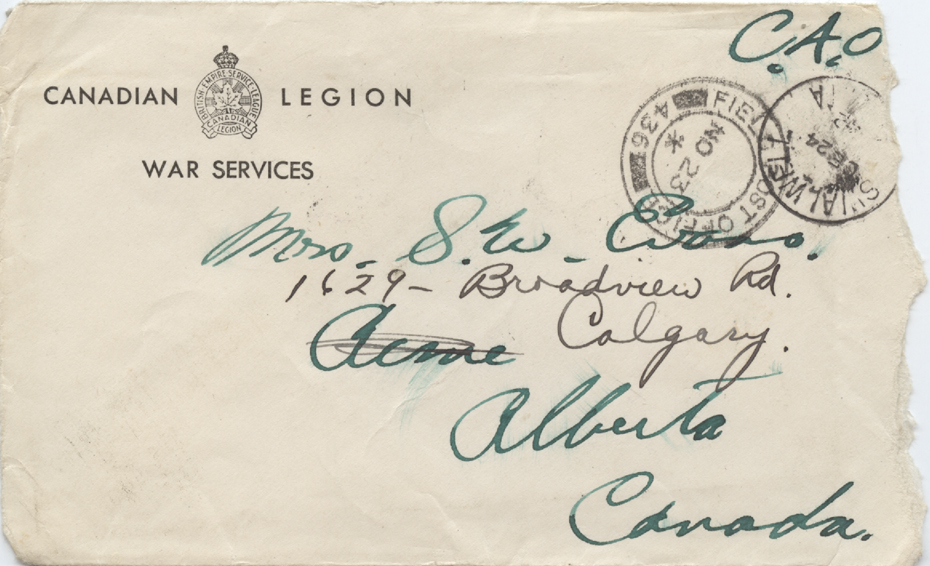 C.A.O
CANADIAN LEGION
BRITISH EMPIRE SERVICE LEAGUE
CANADIAN
LEGION
WAR SERVICES
FIELD POST OFFICE
436
NO 23
24
Mrs. S.W. Evans.
1629- Broadview Rd.
Acme Calgary.
Alberta
Canada.